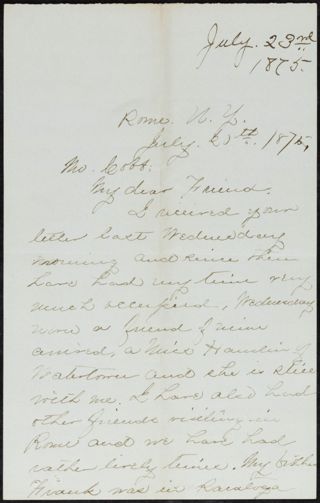 July. 23rd
1875.
Rome N. Y.
July. th. 1875,
Mr. Cobb.
My dear Friend.
I received your
letter last Wednesday
morning and since then
have had my time very
much occupied, Wednesday
noon a friend of mine
arrived, a Miss Hamlin of
Watertown and she is still
with me. I have also had
other friends visiting in
Rome and we have had
rather lively times. My
Frank was in Saratoga